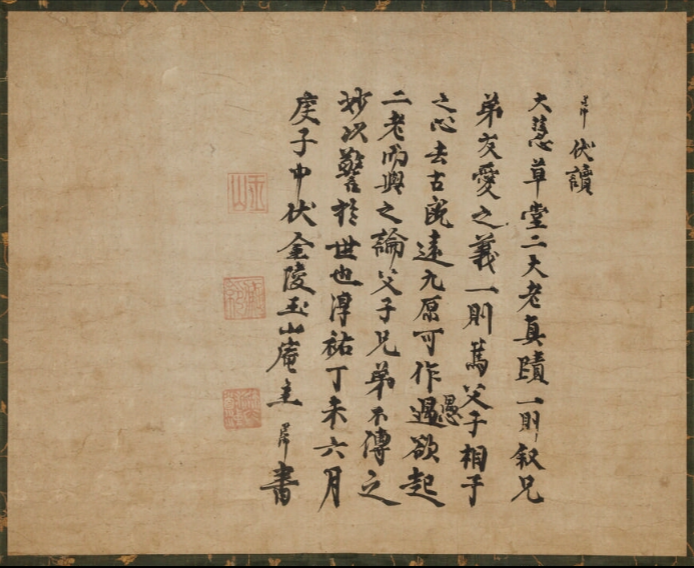 伏讀
大慧草堂二大老真蹟一則叙兄
弟友愛之義一則篤父子相予
之心去古既遠九原可作愚欲起
二老而與之論父子兄弟不傳之
妙以警於世也淳祐丁未六月
庚子中伏金陵玉山庵主 書